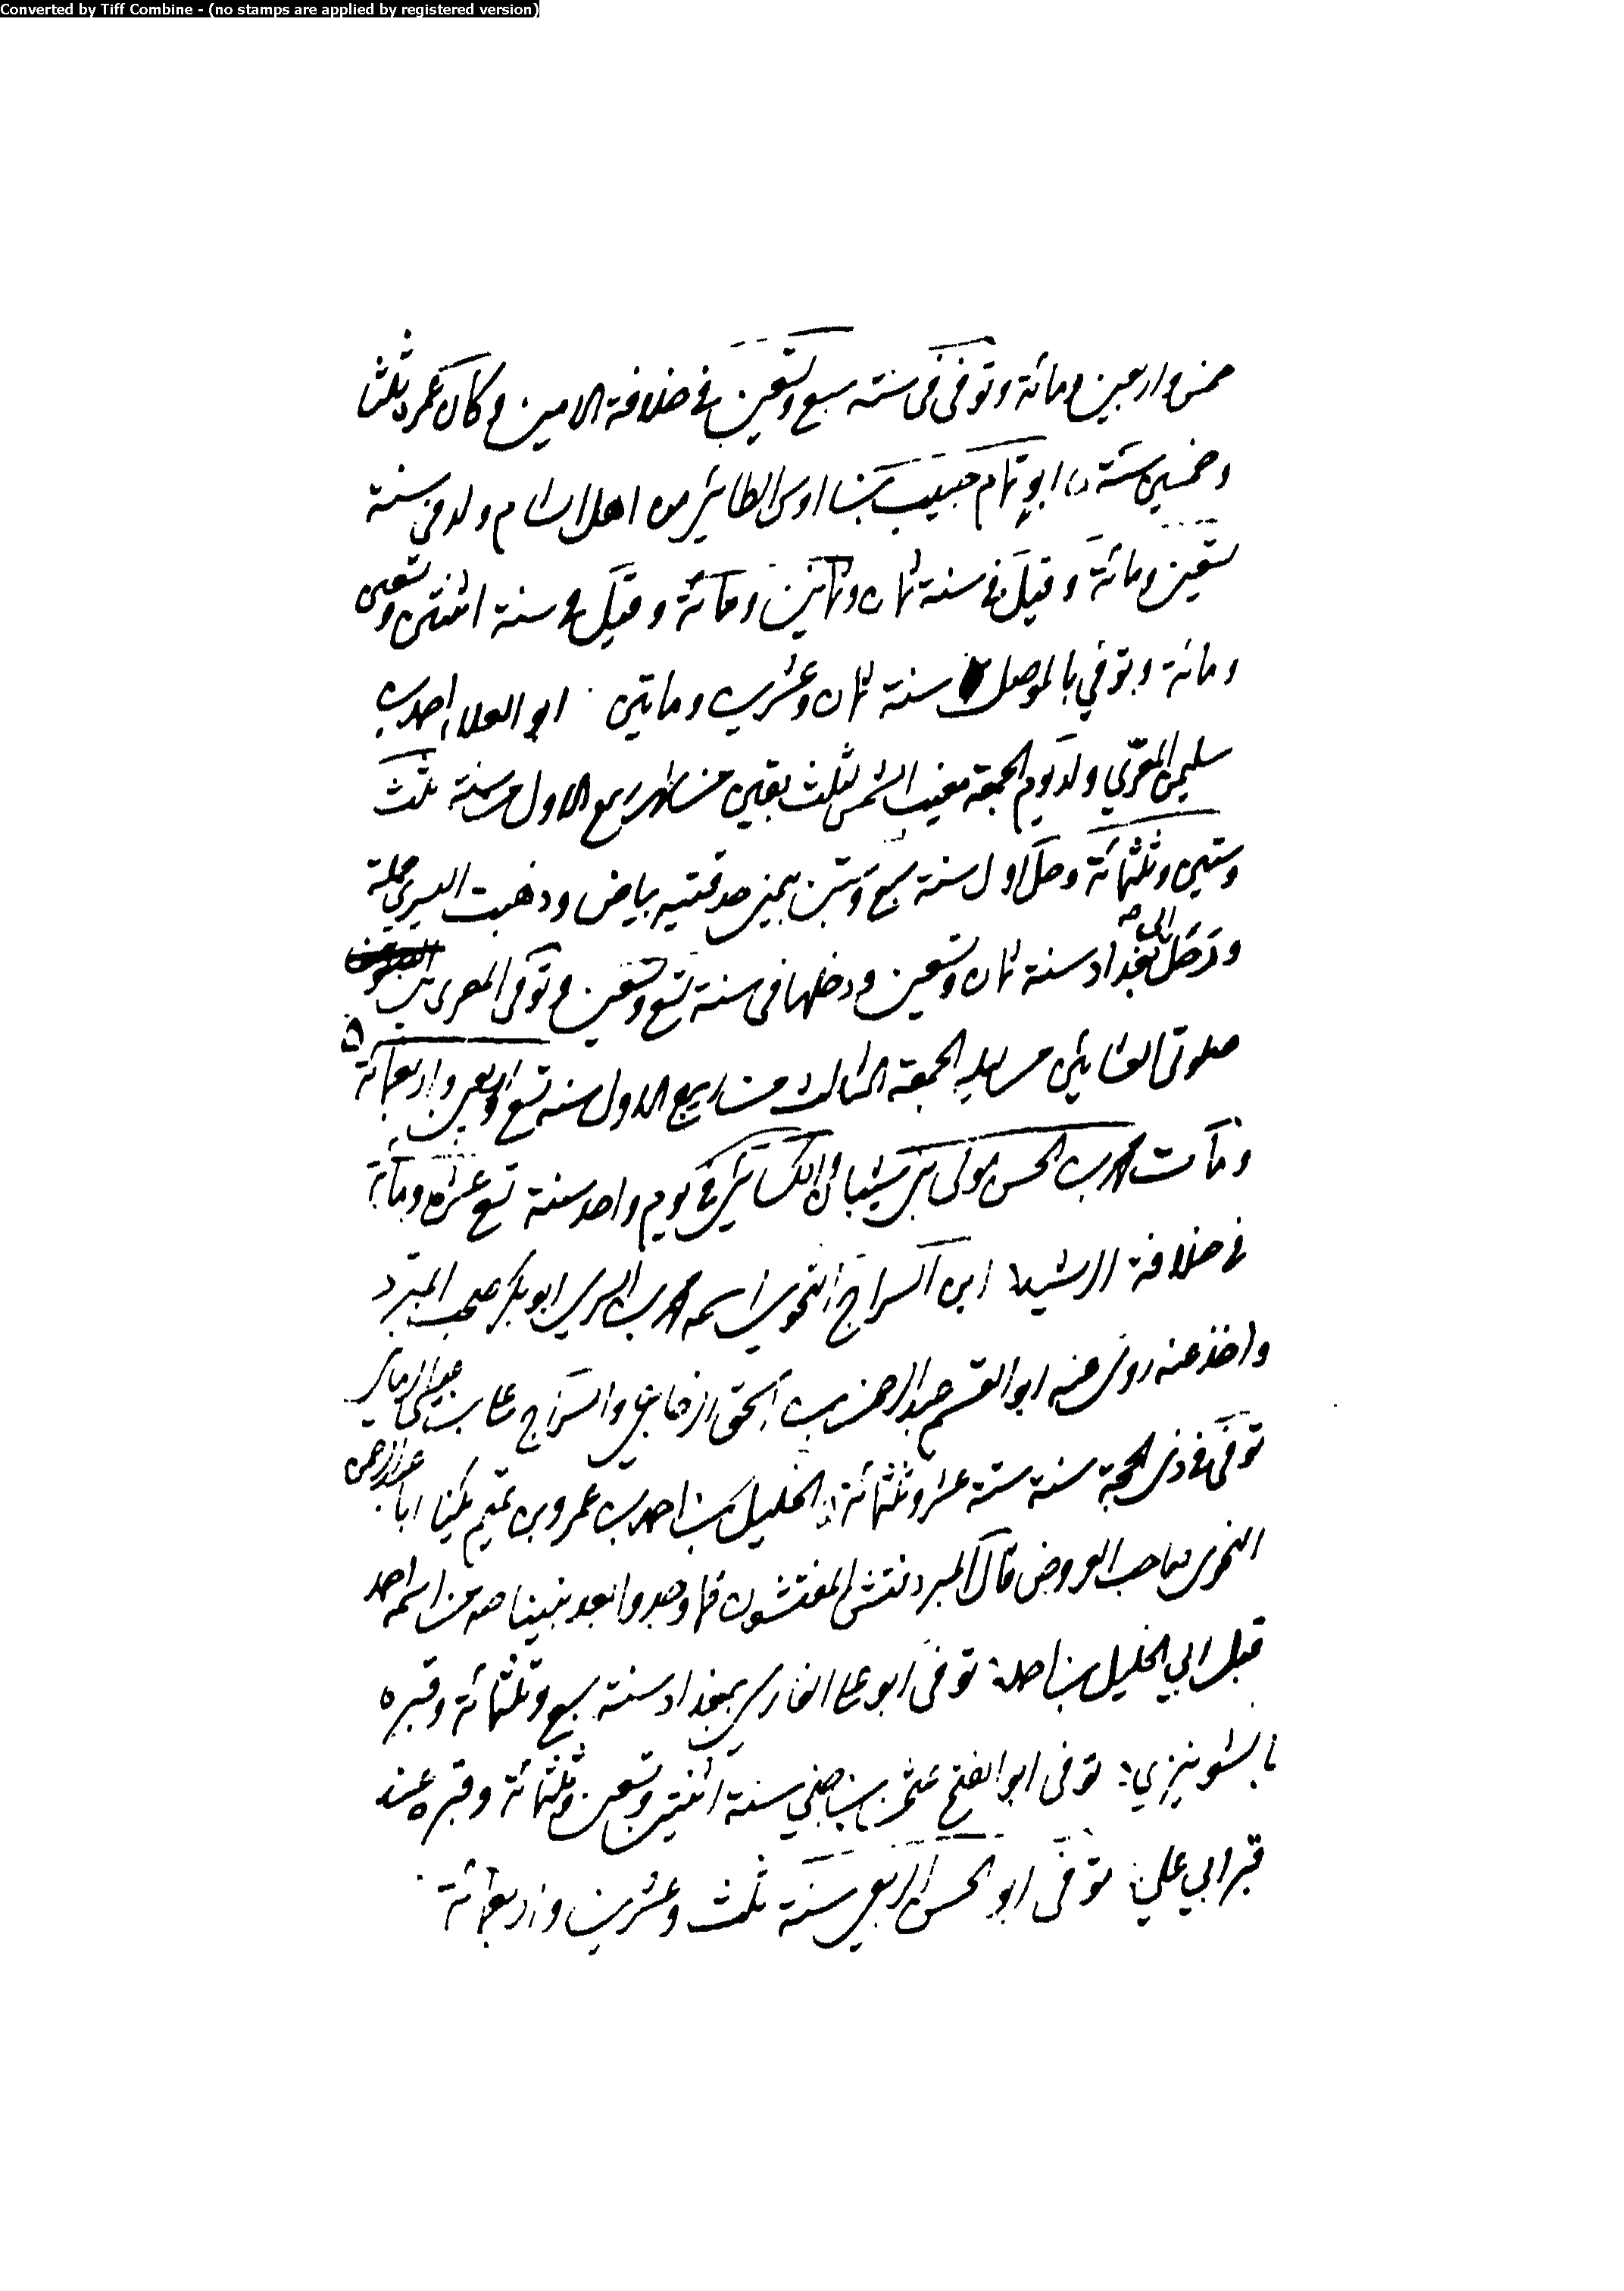 Converted by Tiff Combine - (no stamps are applied by registered version)
خمس واربعين ومائة وتوفى فى سنة سبع وتسعين فى خلافة الامين وكان عمره ثلثا
وخمسين سنة ابو تمام حبيب بن اوس الطائى من اهل الشام ولد فى سنة
تسعين ومائة وقيل فى سنة ثمان وثمانين ومائة وقيل فى سنة اثنتين وتسعين
ومائة وتوفي بالموصل سنة ثمان وعشرين ومايتين ابو العلاء احمد بن
سليمن المعري ولد يوم الجمعة مغيب الشمس لثلث بقين من شهر ربيع الاول من سنة ثلث
وستين وثلثمائة وحل اول سنة سبع وستين بيمنى حدقتيه بياض وذهبت اليسرى جملة
ورحل الى بغداد سنة ثمان وتسعين ودخلها فى سنة تسع وتسعين وتوفى المعرى بين
صلوتى العشايين من ليلة الجمعة الثالث من ربيع الاول سنة تسع واربعين واربعمائة
ومات محمد بن الحسن مولى بنى شيبان والكسائى فى يوم واحد سنة تسع عشرة ومائة
فى خلافة الرشيد ابن السراج النحوى اسمه محمد بن السرى ابو بكر صحب المبرد
واخذ عنه روى عنه ابو القسم عبد الرحمن بن اسحق الزجاجي والسراج على بن عيسى الرمانى
توفى فى ذى الحجة سنة ستة عشر وثلثمائة الخليل بن احمد بن عمرو بن تميم يكنا ابا عبد الرحمن
النحوى صاحب العروض قال المبرد فتش المفتشون فما وجدوا بعد نبينا صه من اسمه احمد
قبل ابي الخليل بن احمد توفى ابو على الفارسى ببغداد سنة سبع وثلثمائة وقبره
بالشونيزي توفى ابو الفتح عثمن بن جني سنة اثنتين وتسعين وثلثمائة وقبره عند
قبر ابي علي توفى ابو الحسن الربعى سنة ثلث وعشرين واربعمائة